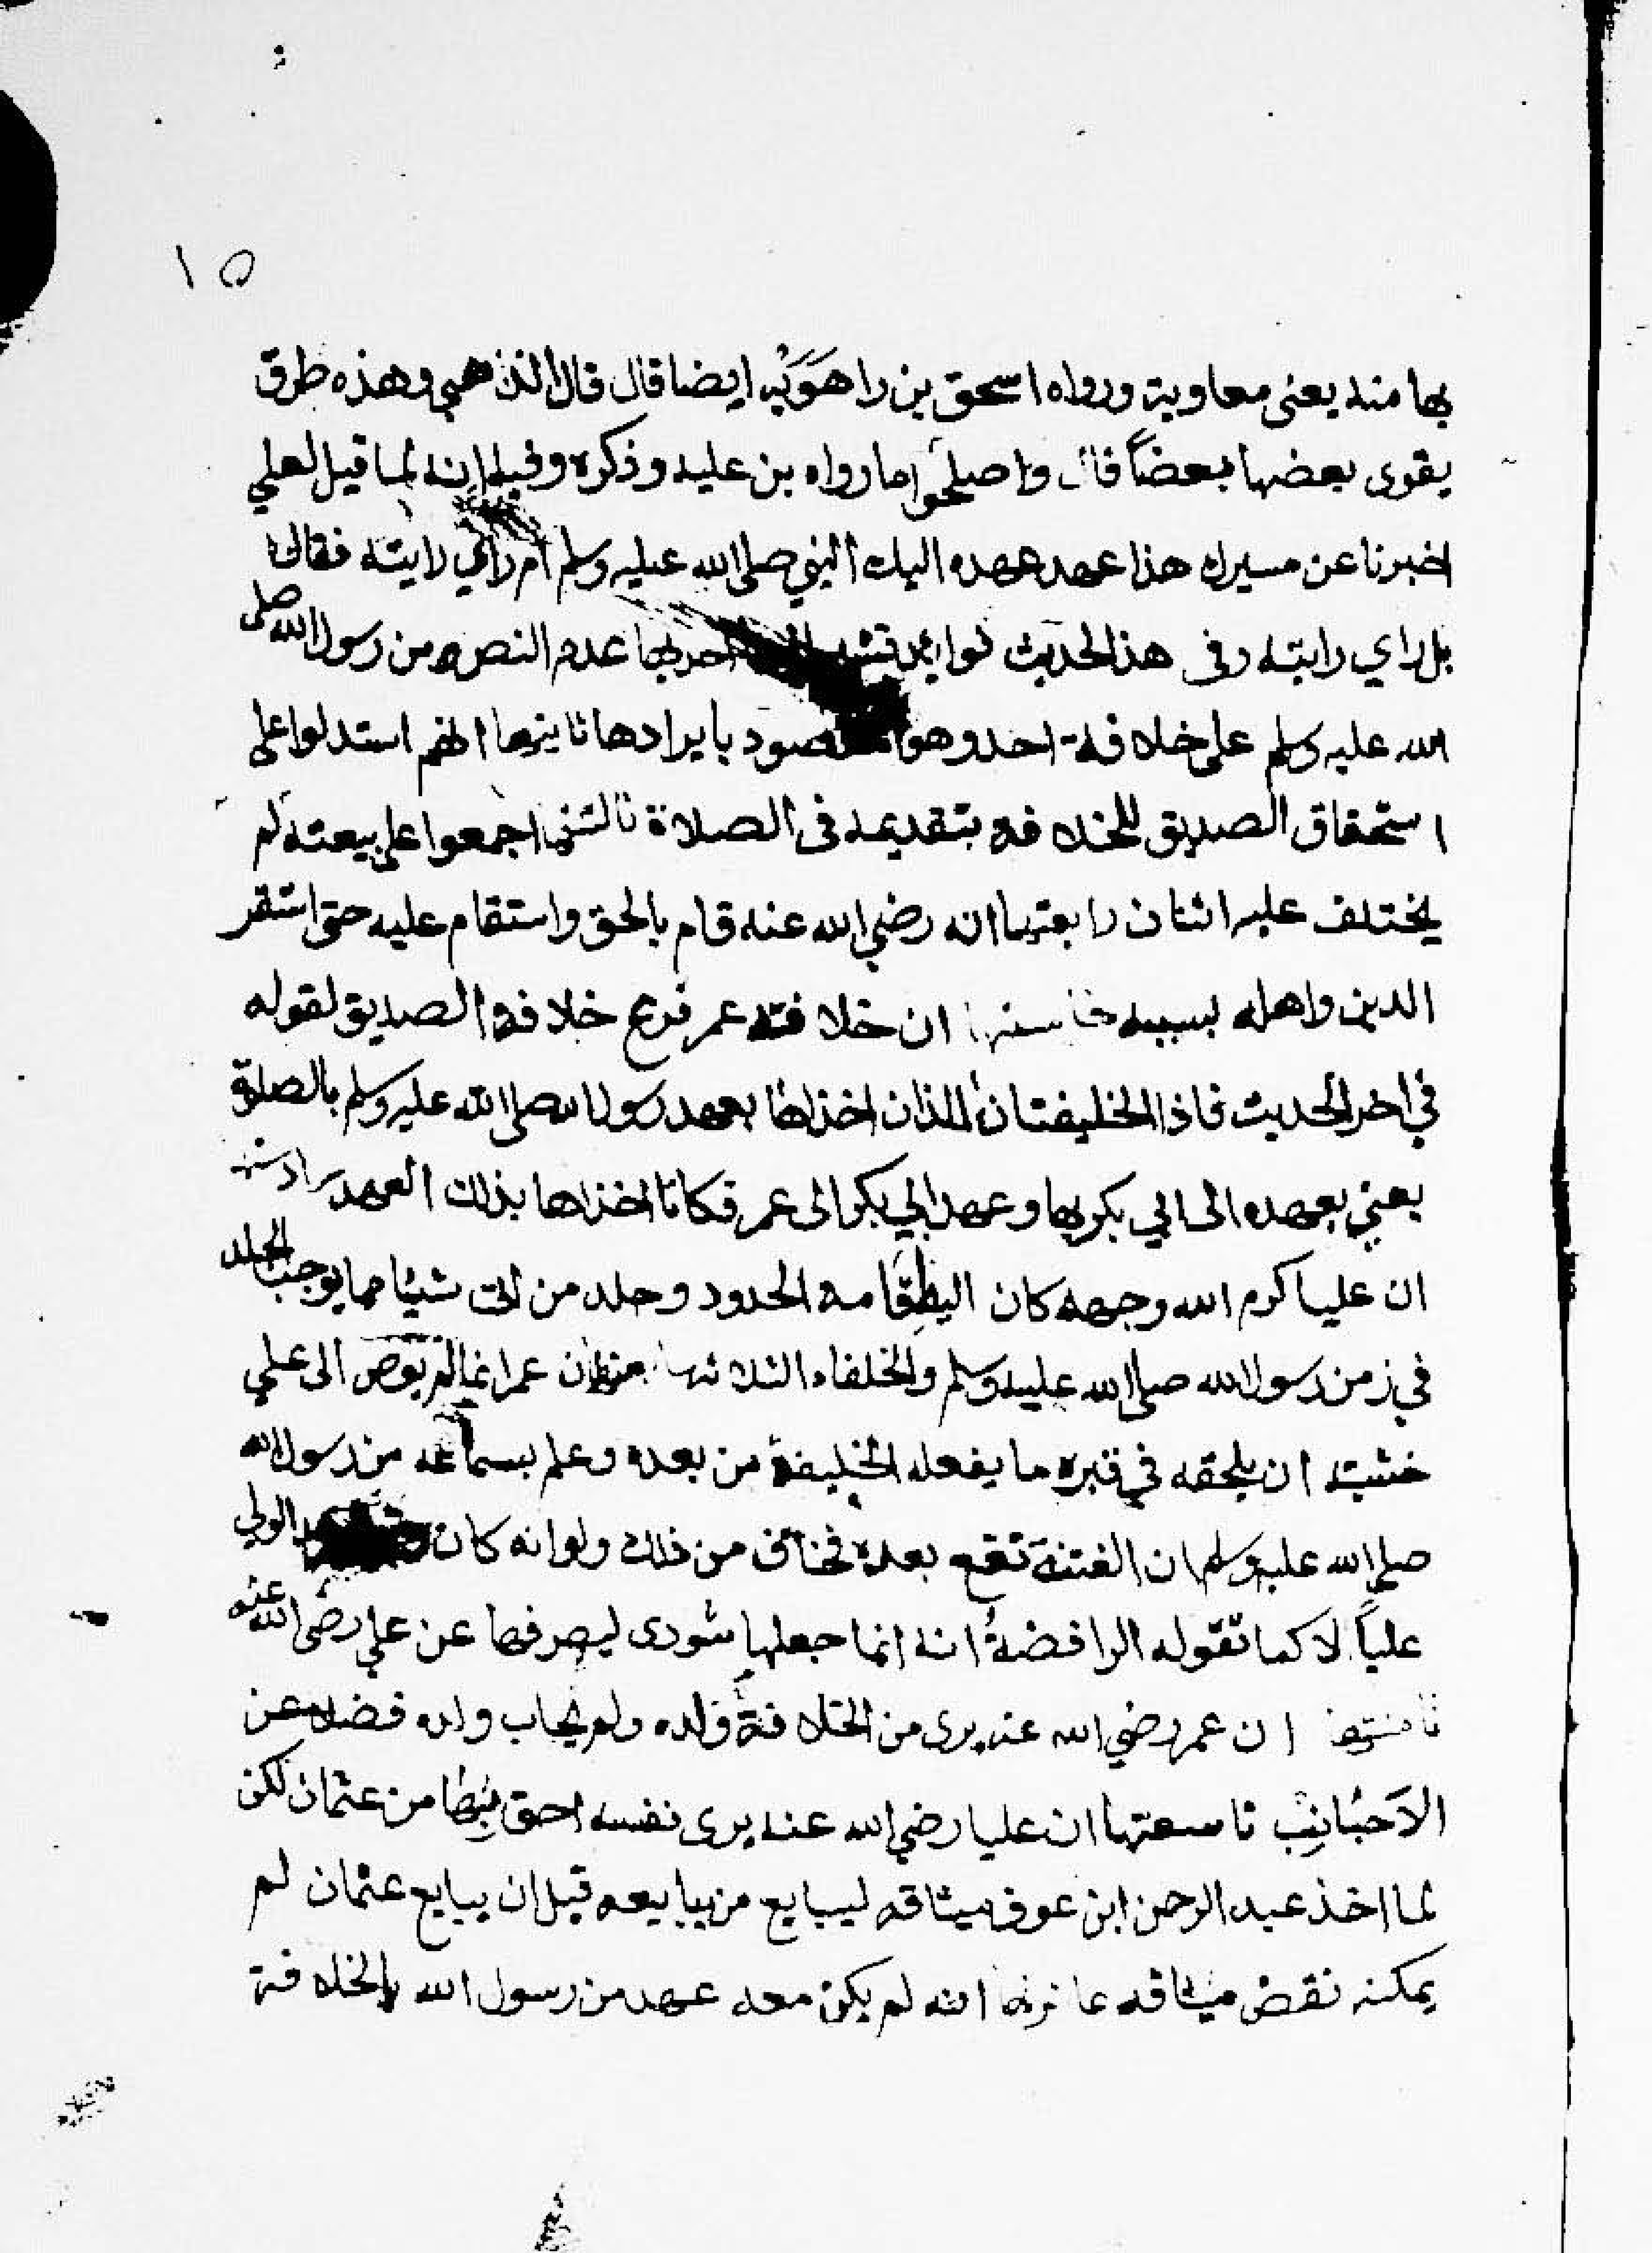 ١٥
بها منه يعنى معاوية ورواه اسحق بن راهَوَيْه ايضا قال قال الذهبي وهذه طرق
يقوى بعضها بعضاً قال واصلحها ما رواه بن عليه وذكره وفيه انه لما قيل لعلي
اخبرنا عن مسيرك هذا عهد عهده اليك النبي صلى الله عليه وسلم ام راي رايته فقال
بل راي رايته وفى هذا الحديث فوايد احدها عدم النص من رسول الله صلى
الله عليه وسلم على خلافة احد وهو المقصود بايرادها ثانيها انهم استدلوا على
استحقاق الصديق للخلافة بتقديمه فى الصلاة ثالثها اجمعوا على بيعته لم
يختلف عليه اثنان رابعتها انه رضي الله عنه قام بالحق واستقام عليه حتى استقر
الدين واهله بسببه خامستها ان خلافة عمر فرع خلافة الصديق لقوله
في اخر الحديث فاذا الخليفتان اللذان اخذاها بعهد رسول الله صلى الله عليه وسلم بالصلوة
يعني بعهده الى ابي بكر بها وعهد ابي بكر الى عمر فكانا اخذاها بذلك العهد سادستها
ان عليا كرم الله وجهه كان اقامة الحدود وجلد من اتى شيئا مما يوجب الجلد
في زمن رسول الله صلى الله عليه وسلم والخلفاء الثلاثة ان عمر انما لم يوص الى علي
خشية ان يلحقه في قبره ما يفعله الخليفة من بعده وعلم بسماعه من رسول الله
صلى الله عليه وسلم ان الفتنة تقع بعده فخاف من ذلك ولو انه كان الولي
علياً لا كما تقوله الرافضةُ انه انما جعلها شورى ليصرفها عن علي رضى الله عنه
ثامنتها ان عمر رضي الله عنه برى من الخلافة ولده ولم يحاب ولده فضلا عن
الاَجَانِب تاسعتها ان عليا رضي الله عنه يرى نفسه احق بها من عثمان لكن
لما اخذ عبد الرحمن ابن عوف ميثاقه ليبايع من يبايعه قبل ان يبايع عثمان لم
يمكنه نقض ميثاقه عاشرتها انه لم يكن معه عهد من رسول الله بالخلافة